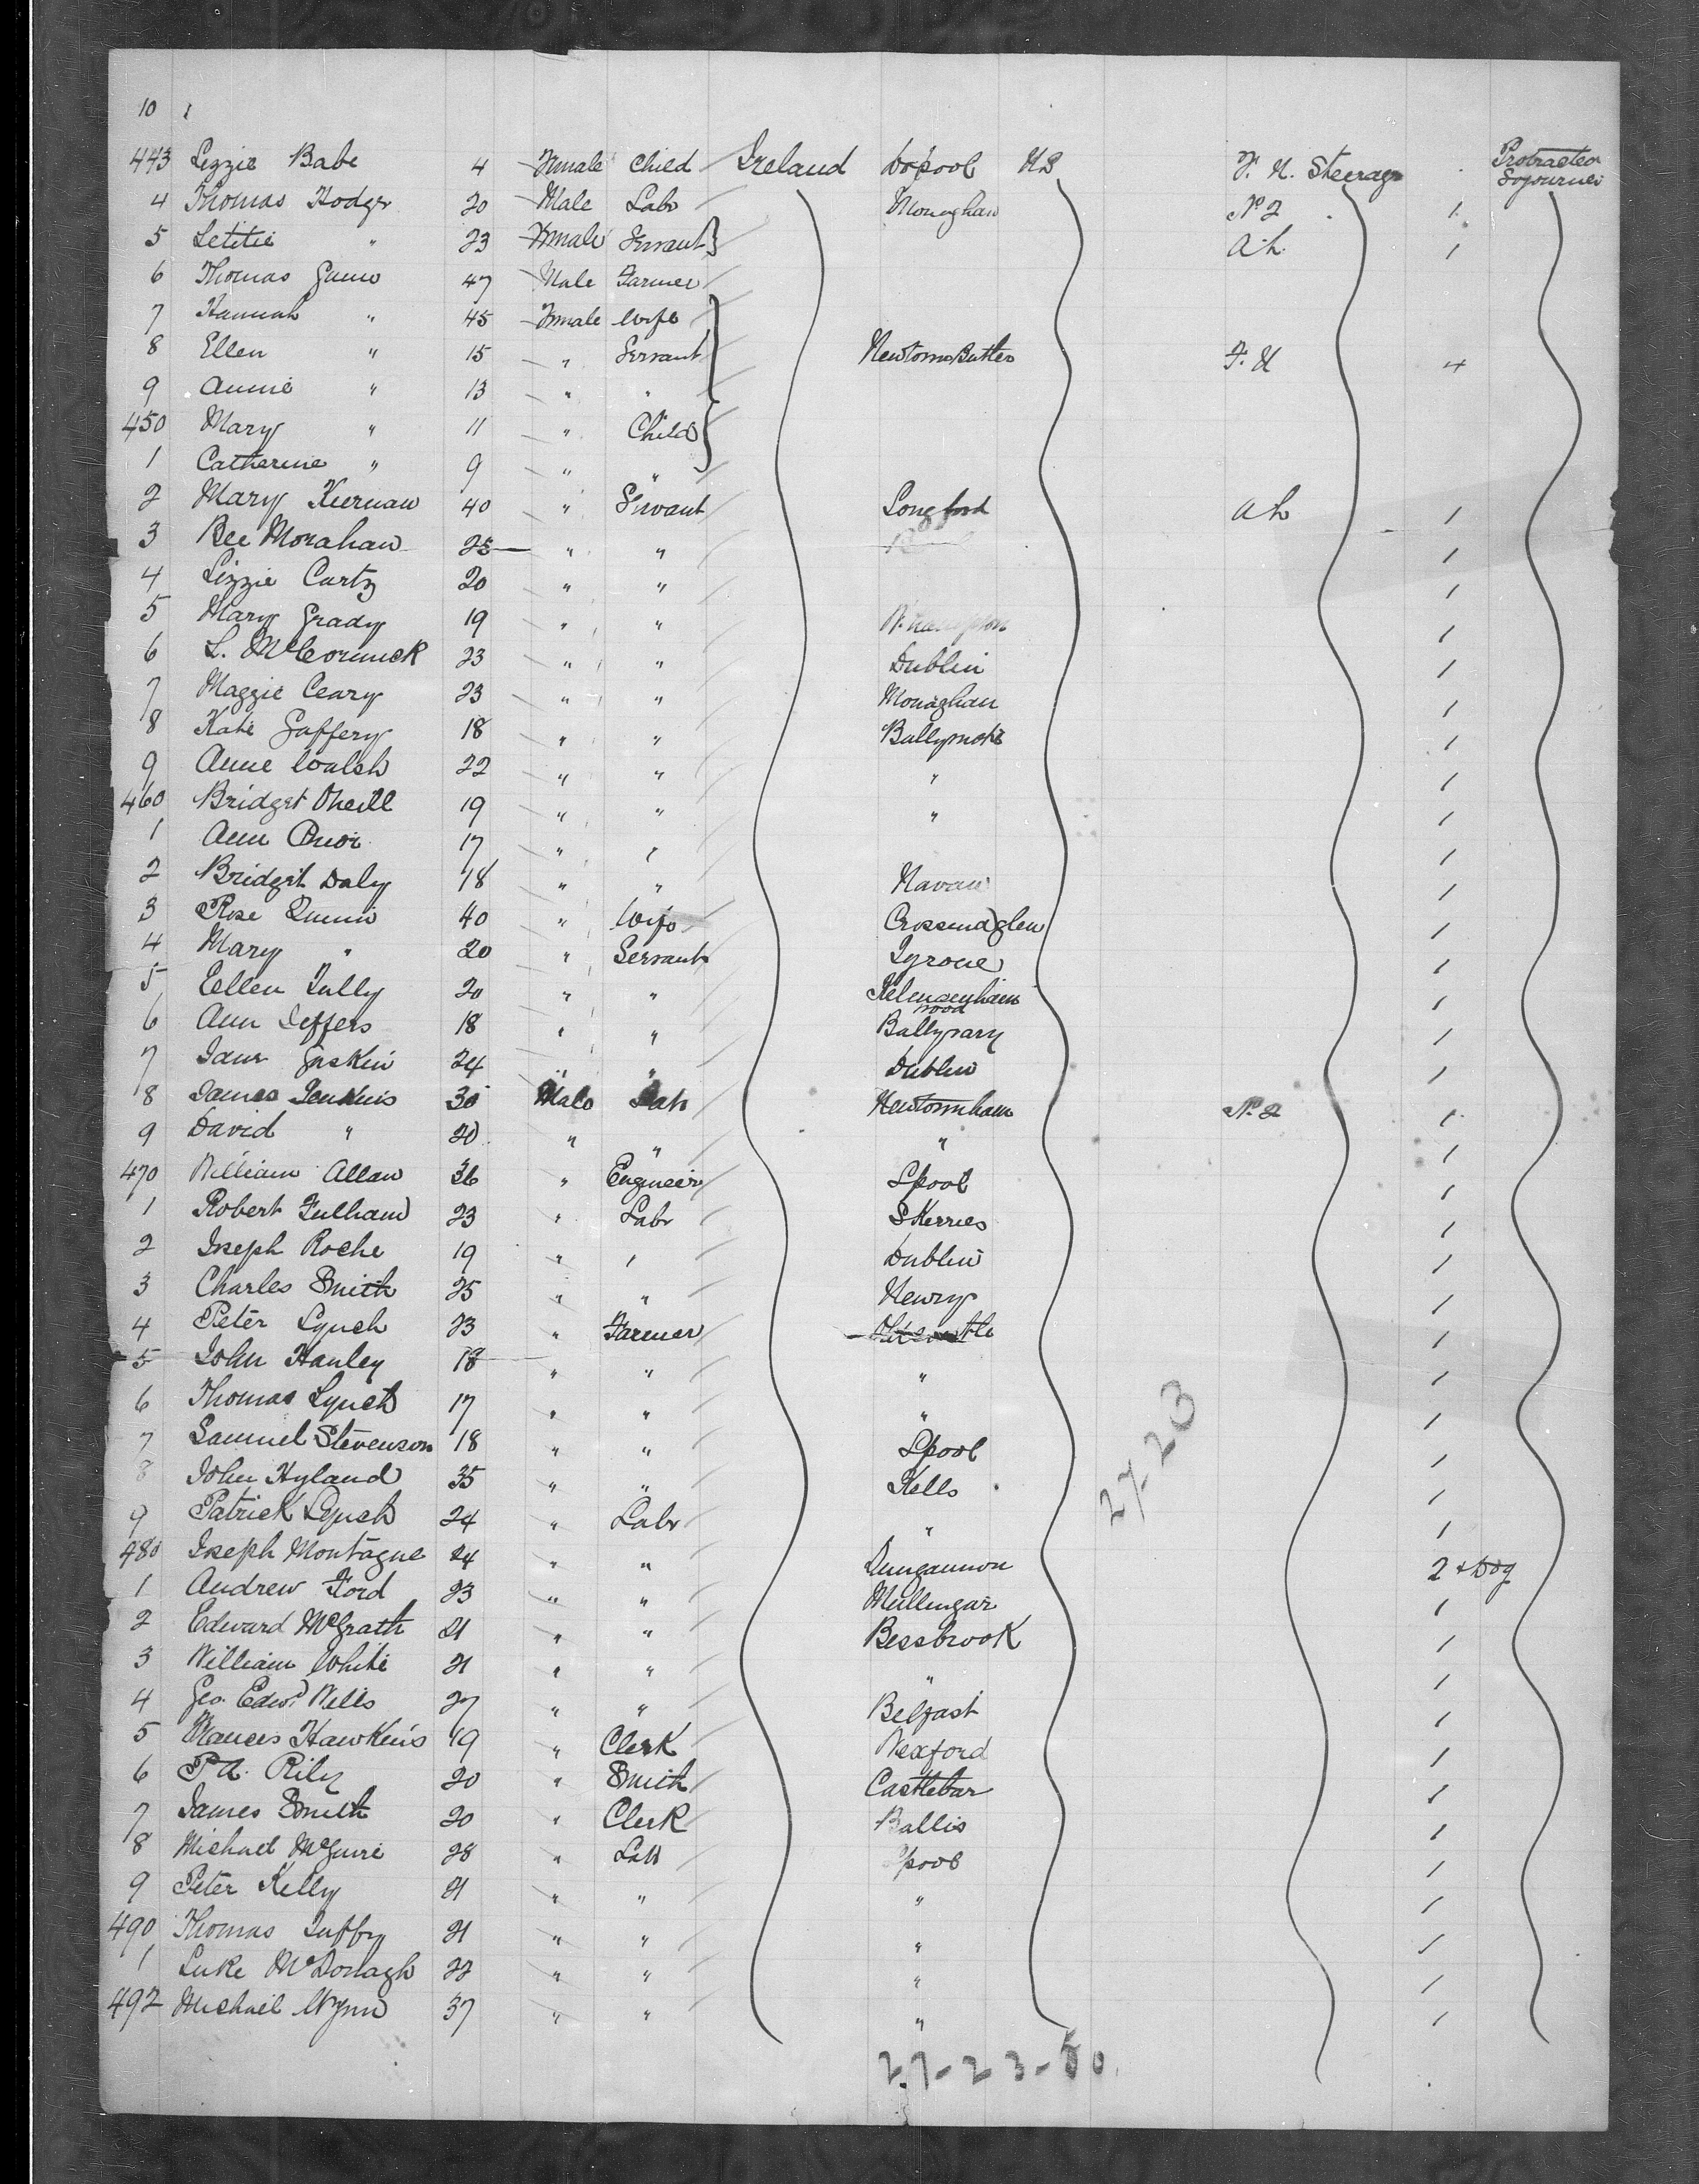 10
443 Lizzie Babe 4 Female Child Ireland L'pool US F. U. Steerage Protracted Sojourner
4 Thomas Hodge 20 Male Labr Monaghan No 2 1
5 Letitie " 23 Female Servant A.h. 1
6 Thomas Gunn 47 Male Farmer
7 Hannah " 45 Female Wife
8 Ellen " 15 " Servant Newtown Butler F. U 4
9 Annie " 13 " "
450 Mary " 11 " Child
1 Catherine " 9 " "
2 Mary Kiernan 40 " Servant Longford A h 1
3 Bee Monahan 25 " " 1
4 Lizzie Carty 20 " " 1
5 Mary Grady 19 " " 1
6 L. McCormick 23 " " Dublin 1
7 Maggie Ceary 23 " " Monaghan 1
8 Kate Gaffery 18 " " Ballymote 1
9 Anne Walsh 22 " " " 1
460 Bridget Oneill 19 " " " 1
1 Ann Prior 17 " " 1
2 Bridget Daly 18 " " Navan 1
3 Rose Quinn 40 " Wife Crossmaglen 1
4 Mary " 20 " Servant Tyrone 1
5 Eellen Tully 20 " " 1
6 Ann Jeffers 18 " " 1
7 Jane Gaskin 24 " " Dublin 1
8 James Jenkins 30 Male Lab Newtownham No. 2 1
9 David " 20 " " " 1
470 William Allan 36 " Engineer L'pool 1
1 Robert Fulham 23 " Labr Skerries 1
2 Joseph Roche 19 " " Dublin 1
3 Charles Smith 25 " " Newry 1
4 Peter Lynch 23 " Farmer 1
5 John Hanley 18 " " " 1
6 Thomas Lynch 17 " " " 1
7 Samuel Stevenson 18 " " L'pool 1
8 John Hyland 35 " " Kells 1
9 Patrick Lynch 24 " Labr " 1
480 Joseph Montague 24 " " Dungannon 2 + Dog
1 Andrew Ford 23 " " Mullingar 1
2 Edward McGrath 21 " " Bessbrook 1
3 William White 21 " " " 1
4 Geo. Edwd Wells 27 " " Belfast 1
5 Frances Hawkins 19 " Clerk Wexford 1
6 P A. Rily 20 " Smith Castlebar 1
7 James Smith 20 " Clerk Ballis 1
8 Michael McGuire 28 " Lab L'pool 1
9 Peter Kelly 21 " " " 1
490 Thomas Tuffy 21 " " " 1
1 Luke McDonagh 22 " " " 1
492 Michael Wynn 37 " " " 1
27-23
27-23-50